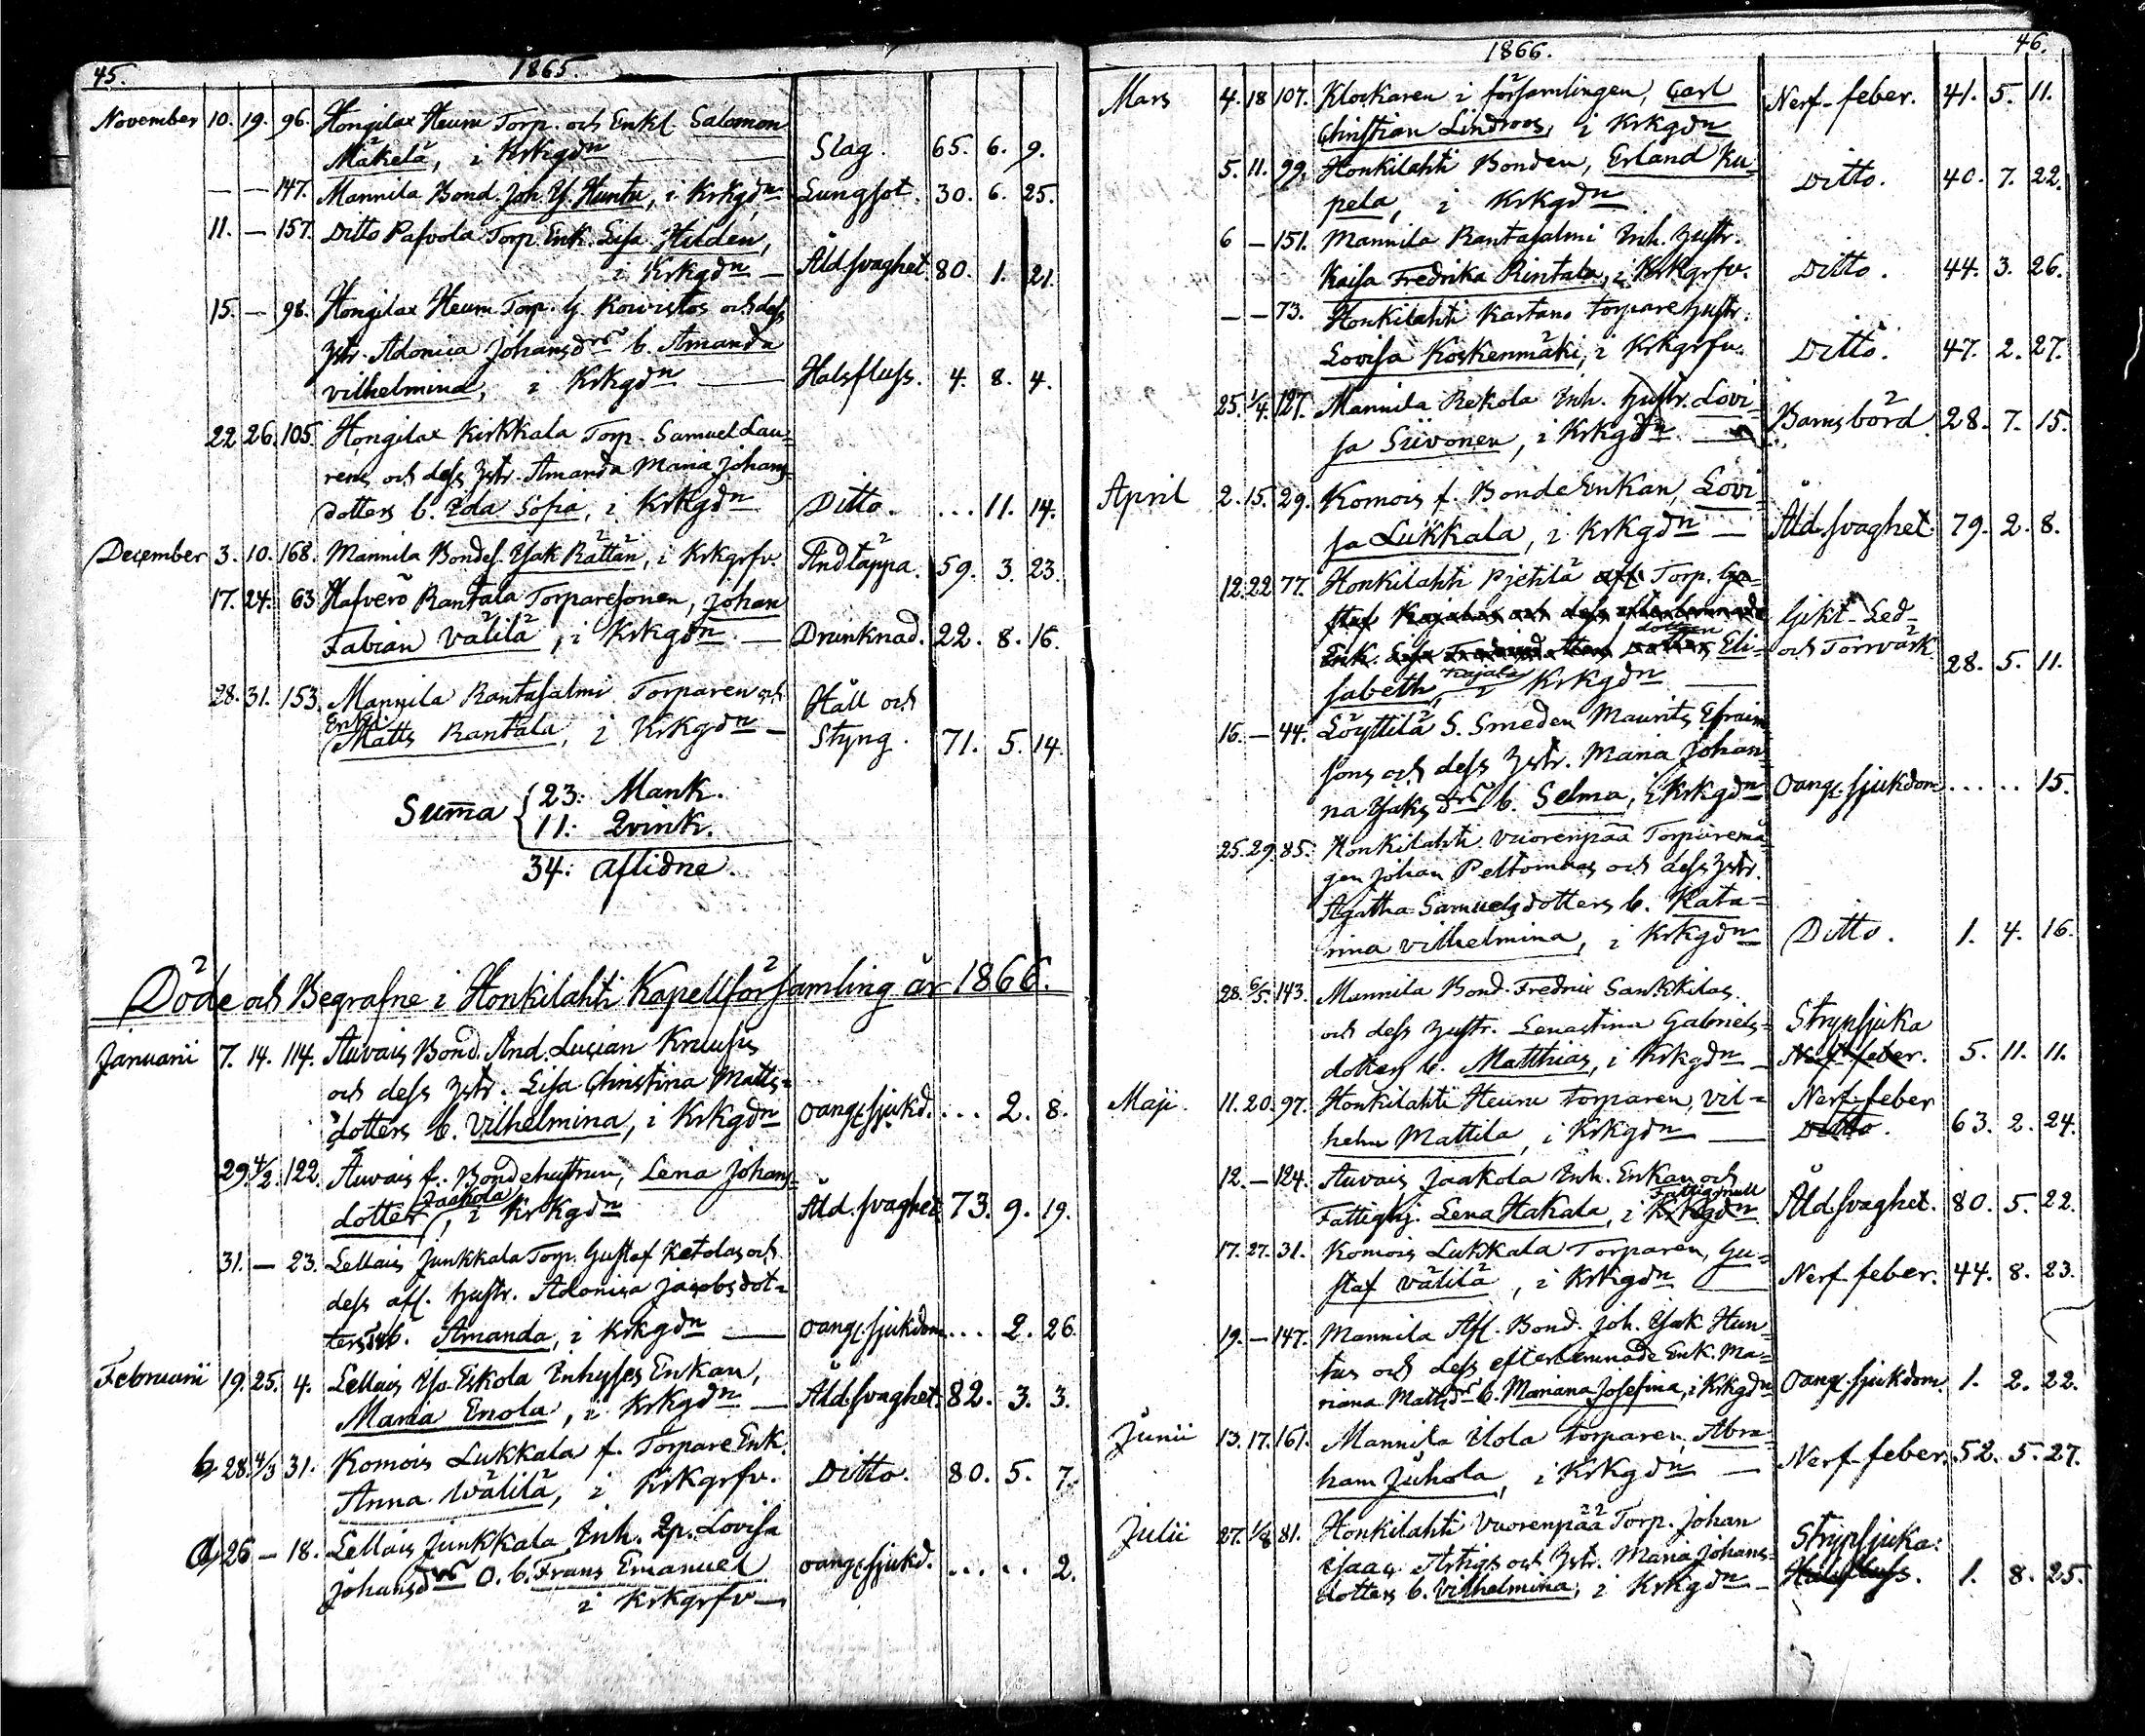 45.
1865.
November 10. 19. 96. Hongilax Heura Torp. och Enkl. Salomon
Mäkelä, i Krkgdn Slag. 65. 6. 9.
— — 147. Mannila Bond. Joh. Y. Huntu, i Krkgdn Lungsot. 30. 6. 25.
11. — 157. Ditto Pafvola Torp. Enk. Lisa Hilden,
i Krkgdn — Åld. svaghet. 80. 1. 21.
15. — 98. Hongilax Heura Torp. G. Kowistos och dess
hstr. Adamia Johansdrs b. Amanda
Vilhelmina, i Krkgdn Halsfluss. 4. 8. 4.
22 26. 105. Hongilax Kirkkala Torp. Samuel Lau-
rens och dess hstr. Amanda Maria Johans-
dotters b. Eda Sofia, i Krkgdn Ditto. ... 11. 14.
December 3. 10. 168. Mannila Bondes. Isak Rättän, i Krkgrfv. Andtäppa. 59. 3. 23.
17. 24. 63 Hafverö Rantala Torparesonen, Johan
Fabian Välilä, i Krkgdn — Drunknad. 22. 8. 16.
28. 31. 153. Mannila Rantasalmi Torparen och
Enkl. Matts Rantala, i Krkgdn — Håll och Styng. 71. 5. 14.
Suma 23: Mank.
11: Qvink.
34: Aflidne.
Döde och Begrafne i Honkilahti Kapellförsamling år 1866.
Januarii 7. 14. 114. Auvais Bond. And. Lucian Kruusus
och dess hstr. Lisa Christina Matts-
dotters b. Vilhelmina, i Krkgdn oang. sjukd. ... 2. 8.
29. 4/2. 122. Auvais f. Bondehustrun, Lena Johans-
dotter Jaakola, i Krkgdn Åld. svaghet 73. 9. 19.
31. — 23. Lellais Junkkala Torp. Gustaf Ketolas och
dess afl. hustr. Adamia Jacobsdot-
ters b. Amanda, i Krkgdn — oang. sjukdom ... 2. 26.
Februarii 19. 25. 4. Lellais Iso-Eskola Inhyses Enkan,
Maria Enola, i Krkgdn — Åld. svaghet. 82. 3. 3.
b 28. 4/3 31. Komois Lukkala f. Torpare Enk.
Anna Wälilä, i Krkgrfv. Ditto. 80. 5. 7.
a 26 — 18. Lellais Junkkala Inh. Qp. Lovisa
Johansdrs O. b. Frans Emanuel
i Krkgrfv — oang. sjukd. .... 2.
1866.
46.
Mars 4. 18 107. Klockaren i församlingen, Carl
Christian Lindroos, i Krkgdn Nerf-feber. 41. 5. 11.
5. 11. 99. Honkilahti Bonden, Erland Ku-
pela, i Krkgdn Ditto. 40. 7. 22.
6 — 151. Mannila Rantasalmi Inh. hustr.
Kaisa Fredrika Rintala, i Krkgrfv. Ditto. 44. 3. 26.
— — 73. Honkilahti Kartano torpare hustr.
Lovisa Koskenmäki, i Krkgrfv. Ditto. 47. 2. 27.
25. 1/4. 127. Mannila Rekola Inh. hustr. Lovi-
sa Siivonen, i Krkgdn — Barnsbörd. 28. 7. 15.
April 2. 15. 29. Komois f. BondeEnkan, Lovi-
sa Lukkala, i Krkgdn — Åld. svaghet. 79. 2. 8.
12. 22 77. Honkilahti Pjetilä afl. Torp. Gu-
staf Kajalas och dess efterlemnade
Enk. dottren Eli-
sabeth Kajala, i Krkgdn Gikt-Led- och Torrvärk. 28. 5. 11.
16. — 44. Löyttilä S. Smeden Maurits Efraim-
sons och dess hstr. Maria Johan-
na Isaksdrs b. Selma, i Krkgdn oang. sjukdom ..... 15.
25. 29. 85. Honkilahti Vuorenpää Torparemå-
gen Johan Peltomaas och dess hstr.
Agatha Samuelsdotters b. Kata-
rina Vilhelmina, i Krkgdn Ditto. 1. 4. 16.
28. 6/5. 143. Mannila Bond. Fredric
och dess hustr. Lenastina Gabriels-
dotters b. Matthias, i Krkgdn — Strypsjuka Nerf-feber. 5. 11. 11.
Maji. 11. 20. 97. Honkilahti Heura torparen, Vil-
helm Mattila, i Krkgdn — Nerf-feber Ditto. 63. 2. 24.
12. — 124. Auvais Jaakola Inh. Enkan och
Fattighj. Lena Hakala, i Krkgdn Åld. svaghet. 80. 5. 22.
17. 27. 31. Komois Lukkala Torparen, Gu-
staf Välilä, i Krkgdn Nerf-feber. 44. 8. 23.
19. — 147. Mannila Afl. Bond. Joh. Isak Hun-
tus och dess efterlemnade Enk. Ma-
riana Mattsdrs b. Mariana Josefina, i Krkgdn Oang. sjukdom. 1. 2. 22.
Junii 13. 17. 161. Mannila Uola torparen, Abra-
ham Juhola, i Krkgdn — Nerf-feber. 52. 5. 27.
Julii 27. 1/8 81. Honkilahti Vuorenpää Torp. Johan
Isaac Artigs och hstr. Maria Johans-
dotters b. Vilhelmina, i Krkgdn — Strypsjuka: Halsfluss. 1. 8. 25.